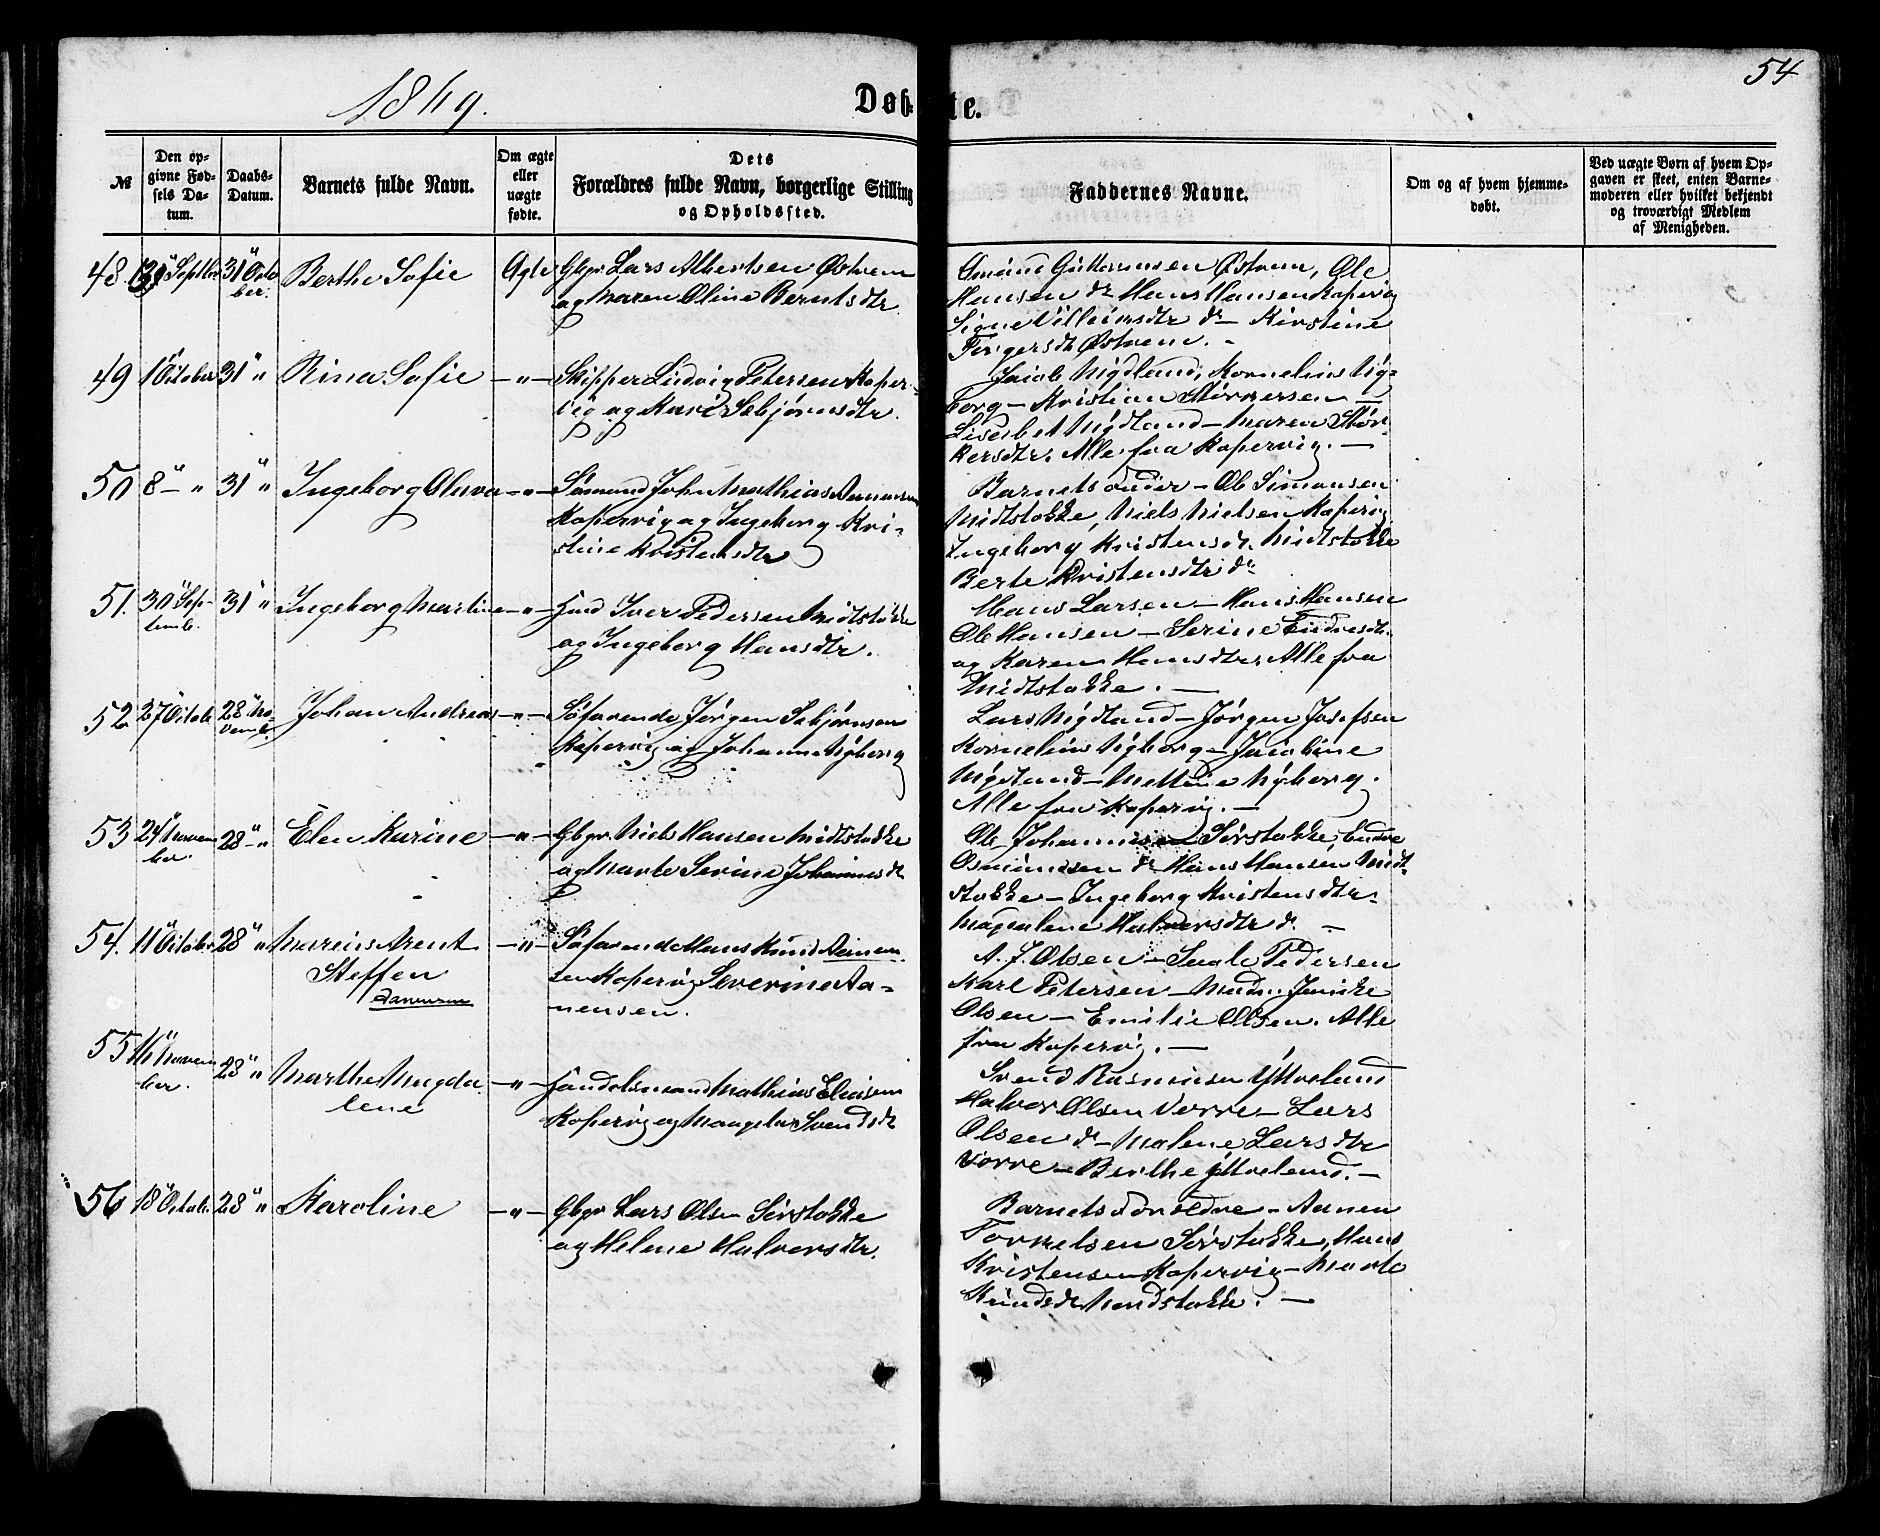 54
1869.
Døbte.
№
Den op-
givne Fød-
sels Da-
tum.
Daabs-
Datum.
Barnets fulde Navn.
Om ægte
eller
uægte
fødte.
Dets
Forældres fulde Navn, borgerlige Stilling
og Opholdssted.
Faddernes Navne.
Om og af hvem hjemme-
døbt.
Ved uægte Børn af hvem Op-
gaven er skeet, enten Barne-
moderen eller hvilket bekjendt
og troværdigt Medlem
af Menigheden.
48 Septbr 31" Octo
ber. Berthe Sofie Ægte Gbgr Lars Albertsen Østrem
og Maren Oline Berntsdtr.
Gutormsen Østrem, Ole
Hansen do Hans Hansen Kopervig
Signe Villumsdtr do — Kirstine
Torgersdtr Østrem. —
49 1" October 31" " Rina Sofie — " — Skipper Ludvig Petersen Koper-
vig og Kari Sebjørnsdtr.
Jacob Nigland, Kornelius Nig-
borg — Kristian Størkersen —
Lisebet Nigland — Maren Stør-
kersdtr. Alle fra Kopervig. —
50 8" — " 31" " Ingeborg Oleva — " — Sømand John Mathias Aanensen
Kopervig og Ingeborg Kri-
stine Kristensdtr
Barnets Fader — Ole Simonsen
Midtstokke, Niels Nielsen Kopervig
Ingeborg Kristensdr. Midtstokke
Berte Kristensdtr do
51. 30" Sep-
temb. 31" " Ingeborg Martine — " — Iver Pedersen Midtstokke
og Ingeborg Hansdtr.
Hans Larsen — Hans Hansen
Ole Hansen — Serine Endresdtr.
og Karen Hansdtr. Alle fra
Midtstokke. —
52 27" Octobr 28" No-
vemb. Johan Andreas — " — Søfarende Jørgen Sebjørnsen
Kopervig og Johanne Nyborg
Lars Nigland — Jørgen Josefsen
Kornelius Nyborg — Jacobine
Nigland — Mettine Nyborg.
Alle fra Kopervig. —
53 24" Novem
ber. 28" — " Elen Karine — " — Gbgr Niels Hansen Midtstokke
og Marte Serine Johannesdtr
Ole Johannesen Sørstokke, Endre
Osmundsen do Hans Hansen Midt-
stokke — Ingeborg Kristensdtr.
Magdalene Halversdtr do. —
54. 11" Octobr 28" " Marius Arent
Steffen
Søfarende Hans Knud Aanen-
sen Kopervig Severine Aa-
nensen.
A. J. Olsen — Pedersen
Karl Petersen — Mads. Janicke
Olsen — Emilie Olsen. Alle
fra Kopervig. —
55 16" Novem
ber. 28" " Marthe Magda
lene — " — Handelsmand Mathias Eliasen
Kopervig og Svendsdtr
Svend Rasmusen Yttreland
Halvor Olsen Vorre — Lars
Olsen do — Malene Larsdtr
Vorre — Berthe Yttreland. —
56 18" Octobr. 28" " Karoline — " — Gbgr Lars Olsen Sørstokke
og Helene Halversdtr.
Barnets Forældre — Aanen
Tormelsen Sørstokke, Hans
Kristensen Kopervig — Marte
Knudsdtr Nordstokke. —